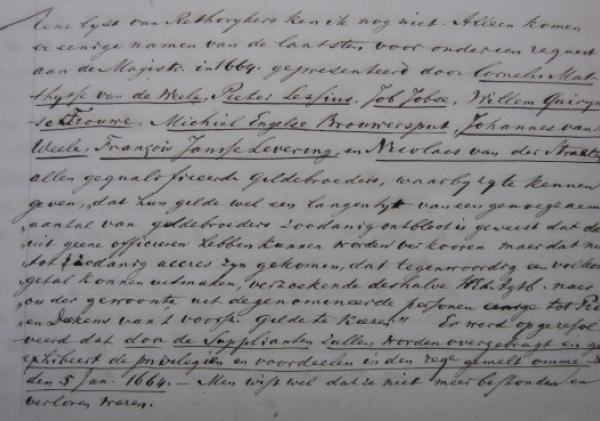 Eene lyst van Rethorykers ken ik nog niet. Alleen komen
er eenige namen van de laatsten voor onder een request
aan de Magistr. in 1664. gepresenteerd door Cornelis Mat-
thysse van de Weele, Pieter Lessius, Job Jobse, Willem Quiryn
se Trouwe, Michiel Engelse Brouwersput, Johannes vande
Weele, François Jansse Levering, en Nicolaes van der Straate
allen gequalificeerde Gildebroeders, waarby zy te kennen
geven, "dat hun gilde wel een langen tyt van een genoegenem
"aantal van gildebroeders zoodanig ontbloot is geweest dat da
"uit geene officieren hebben kunnen worden verkooren maer dat nu
"tot zoodanig accres zyn gekomen, dat tegenwoordig een volkom
"getal konnen uitmaken, verzoekende derhalve naer
"ouder gewoonte uit de genomineerde personen tot
"en Dekens van 't voorsz. Gilde te kiezen". Er werd op geresol
veerd dat door de Supplianten zullen worden overgebragt en ge
exhibeert de privilegien en voordeelen in den rege gemelt omme
den 5 Jan. 1664. — Men wist wel dat ze niet meer bestonden en
verloren waren.